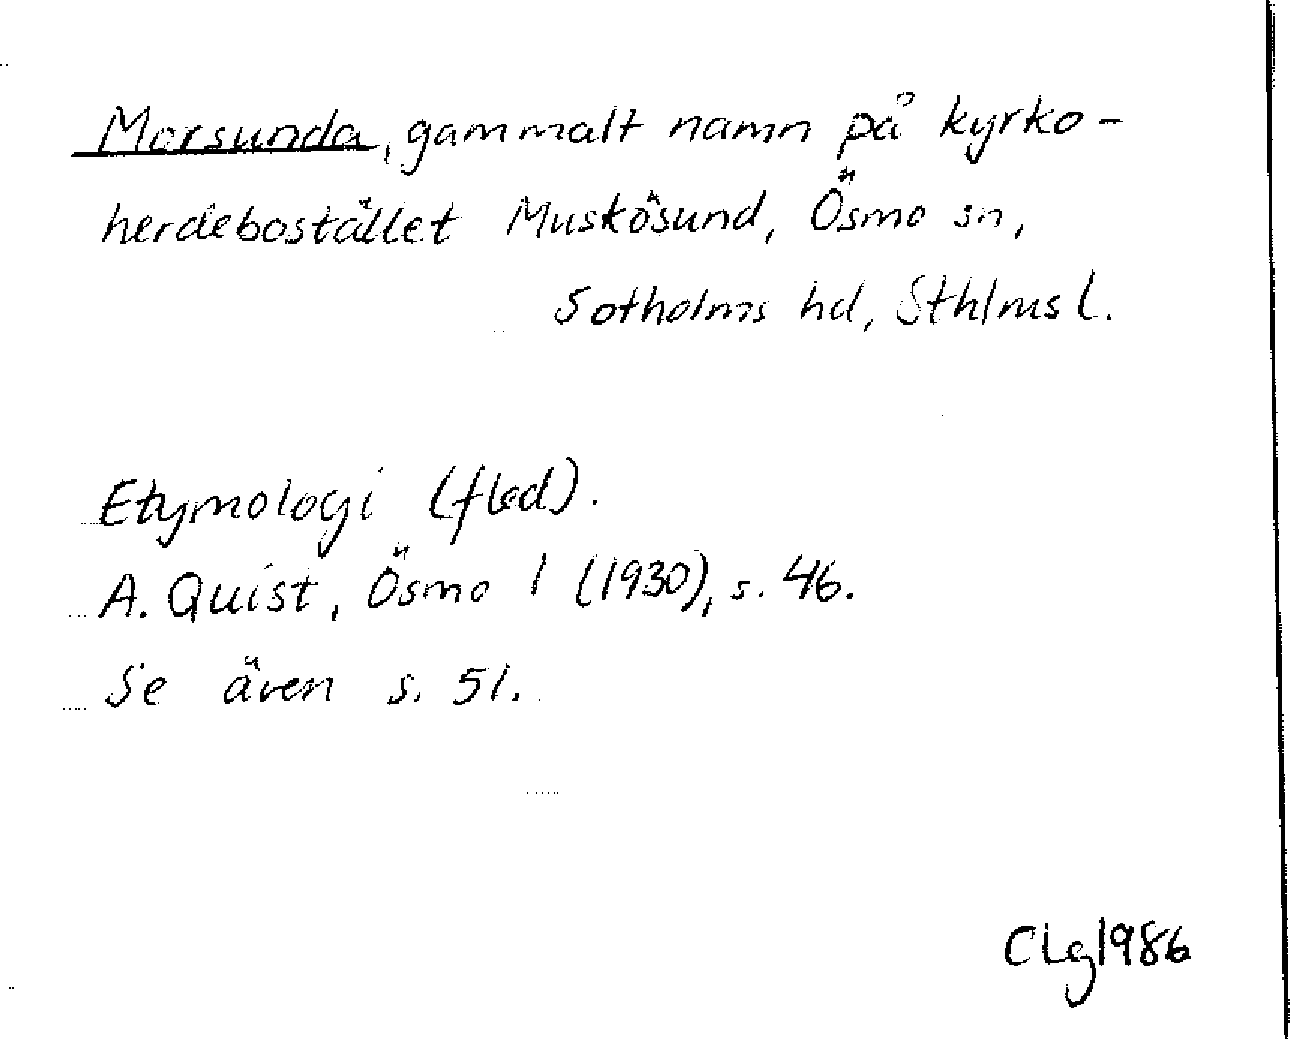 Morsunda, gammalt namn på kyrko-
herdebostället Muskösund, Ösmo sn,
Sotholms hd, Sthlms l.
Etymologi (fled).
A. Quist, Ösmo I (1930), s. 46.
Se även s. 51.
CLg 1986